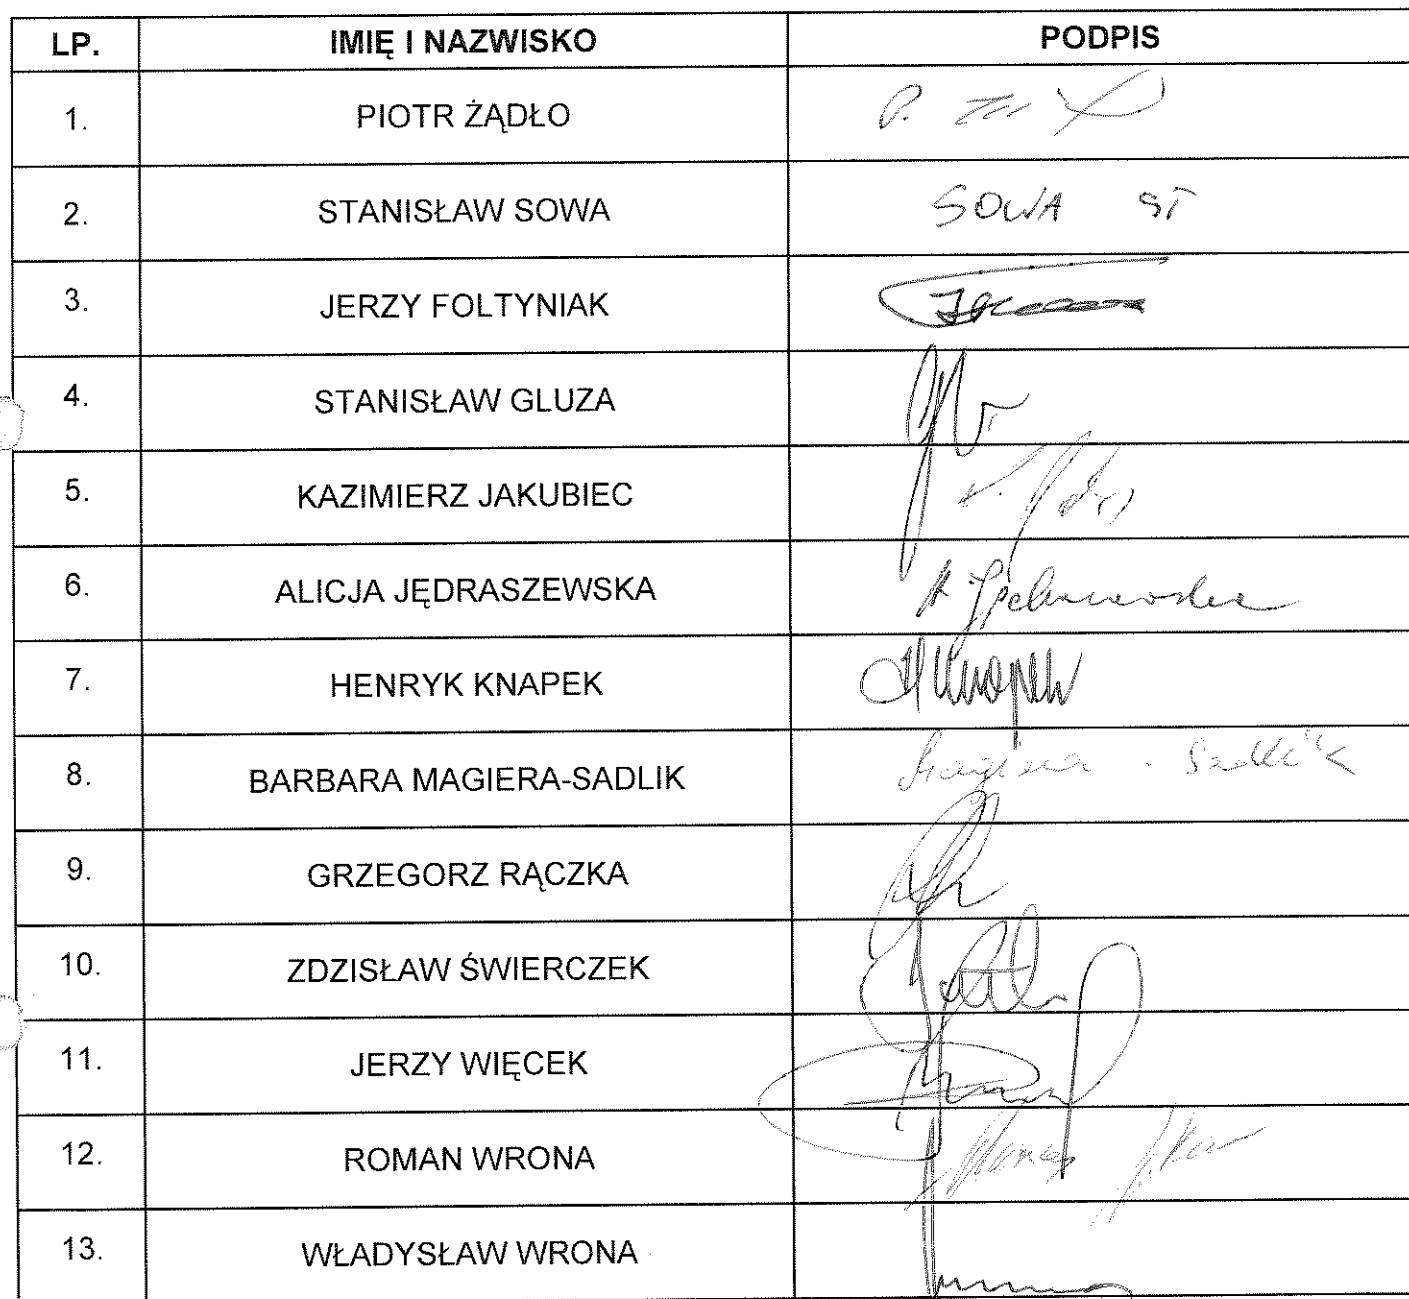 LP. IMIĘ I NAZWISKO PODPIS
1. PIOTR ŻĄDŁO P.
2. STANISŁAW SOWA SOWA ST
3. JERZY FOLTYNIAK
4. STANISŁAW GLUZA
5. KAZIMIERZ JAKUBIEC
6. ALICJA JĘDRASZEWSKA
7. HENRYK KNAPEK H Knapek
8. BARBARA MAGIERA-SADLIK Magiera - Sadlik
9. GRZEGORZ RĄCZKA
10. ZDZISŁAW ŚWIERCZEK
11. JERZY WIĘCEK
12. ROMAN WRONA
13. WŁADYSŁAW WRONA